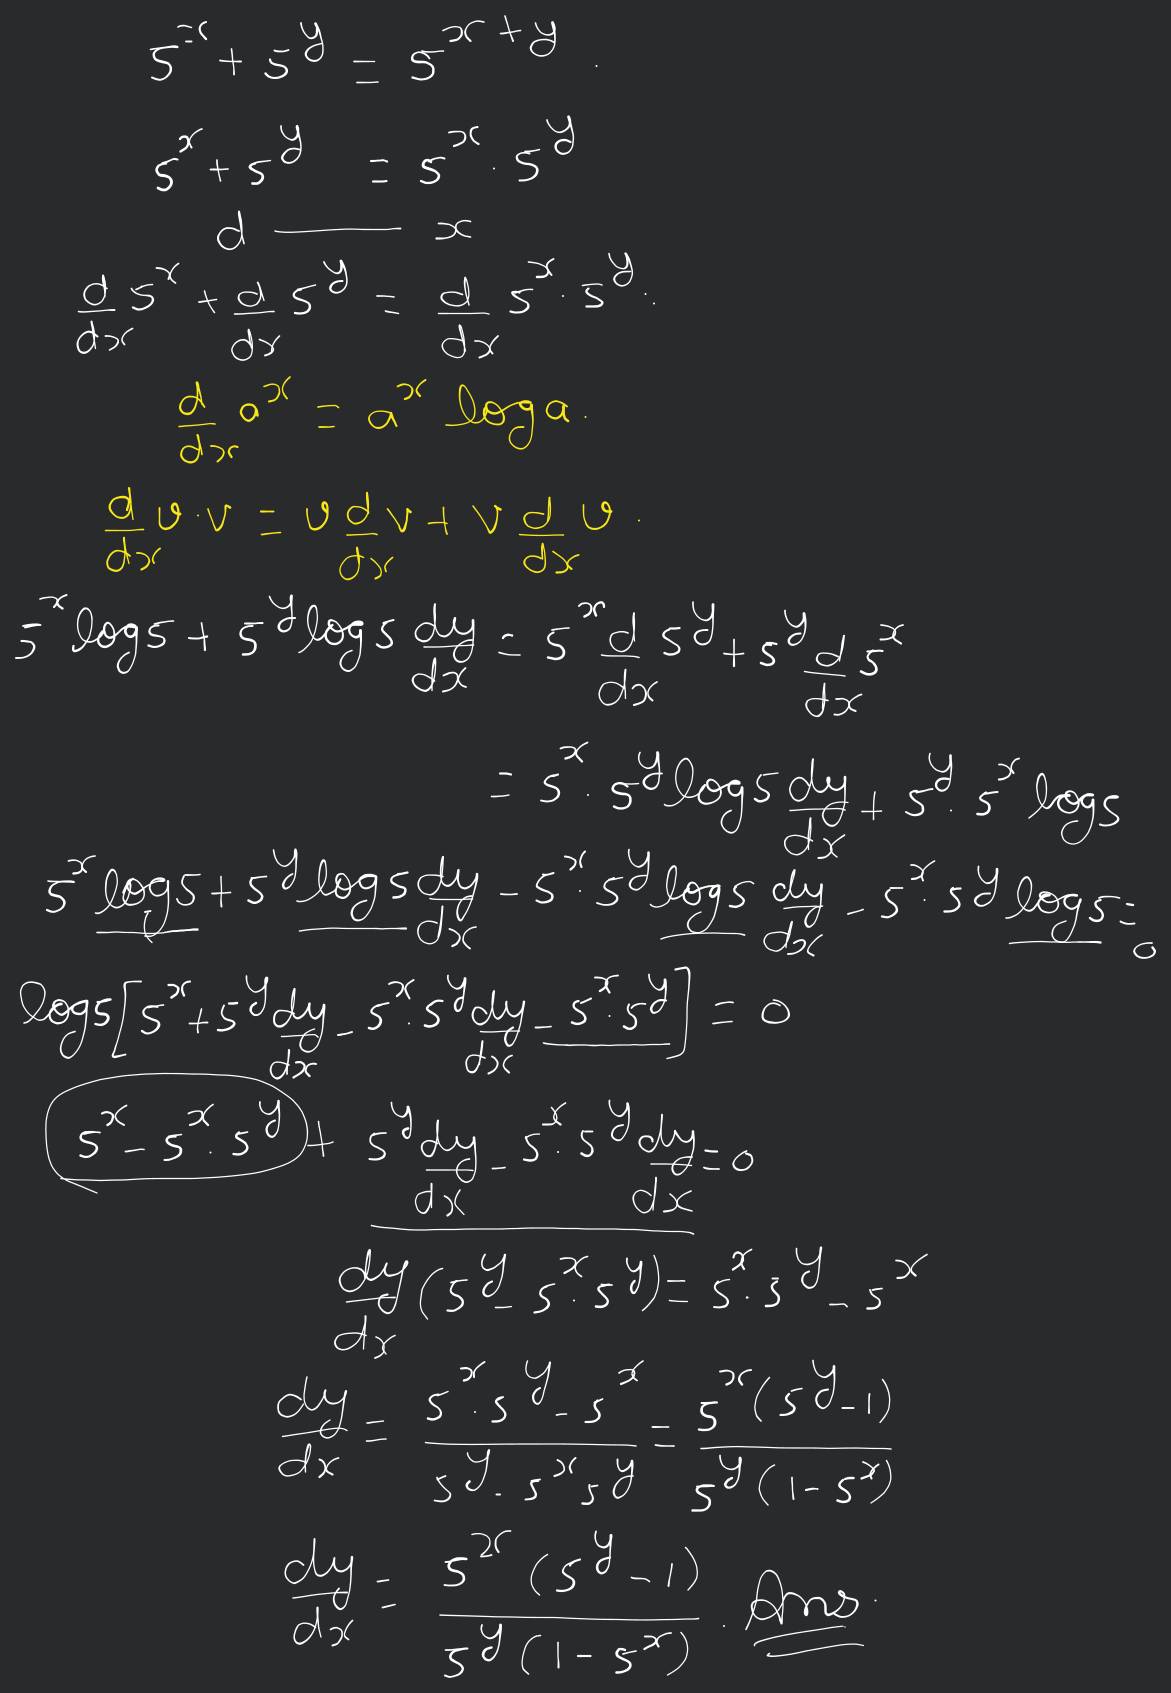 5^x + 5^y = 5^{x+y}.
5^x + 5^y = 5^x . 5^y
d —— x
d/dx 5^x + d/dx 5^y = d/dx 5^x . 5^y.
d/dx a^x = a^x log a.
d/dx u.v = u d/dx v + v d/dx u.
5^x log5 + 5^y log5 dy/dx = 5^x d/dx 5^y + 5^y d/dx 5^x
= 5^x . 5^y log5 dy/dx + 5^y . 5^x log5
5^x log5 + 5^y log5 dy/dx - 5^x . 5^y log5 dy/dx - 5^x . 5^y log5 = 0
log5 [5^x + 5^y dy/dx - 5^x . 5^y dy/dx - 5^x . 5^y] = 0
5^x - 5^x . 5^y + 5^y dy/dx - 5^x . 5^y dy/dx = 0
dy/dx (5^y - 5^x . 5^y) = 5^x . 5^y - 5^x
dy/dx = (5^x . 5^y - 5^x)/(5^y - 5^x 5^y) = 5^x (5^y - 1)/5^y (1 - 5^x)
dy/dx = 5^x (5^y - 1)/5^y (1 - 5^x) . Ans.